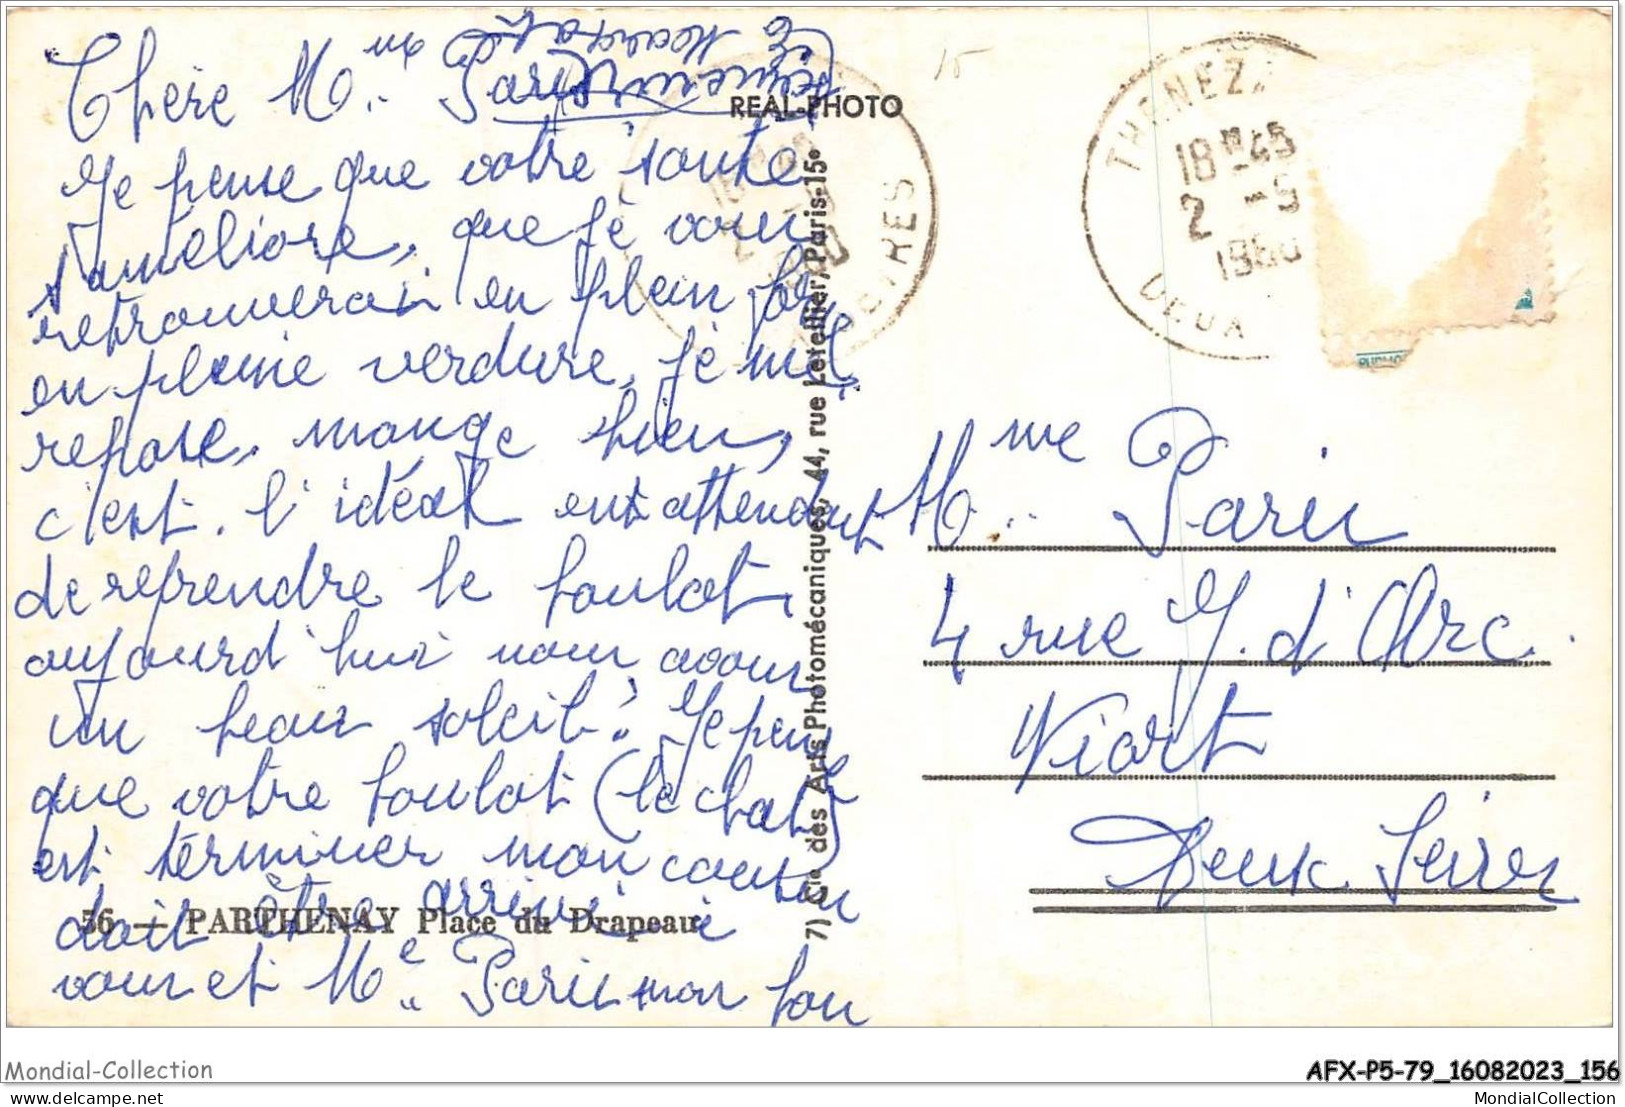 Chère Mme Paris
REAL-PHOTO
Je pense que votre sante
s'ameliore, que je vous
retrouverai en plein
en pleine verdure, je me
repose, mange bien,
c'est l'idéal en attendant
de reprendre le boulot,
aujourd'hui nous avons
un beau soleil. Je pense
que votre boulot (le chat)
est terminer mon
doit être arriver
vous et Me Paris mon bon
56 — PARTHENAY Place du Drapeau
7) Cie des Arts Photomécaniques, 44, rue Letellier, Paris-15e
THENEZ
18H45
2 -9
1960
DEUX
SEVRES
Mme Paris
4 rue J. d'Arc
Niort
Deux Sèvres
Mondial-Collection
AFX-P5-79_16082023_156
www.delcampe.net
MondialCollection